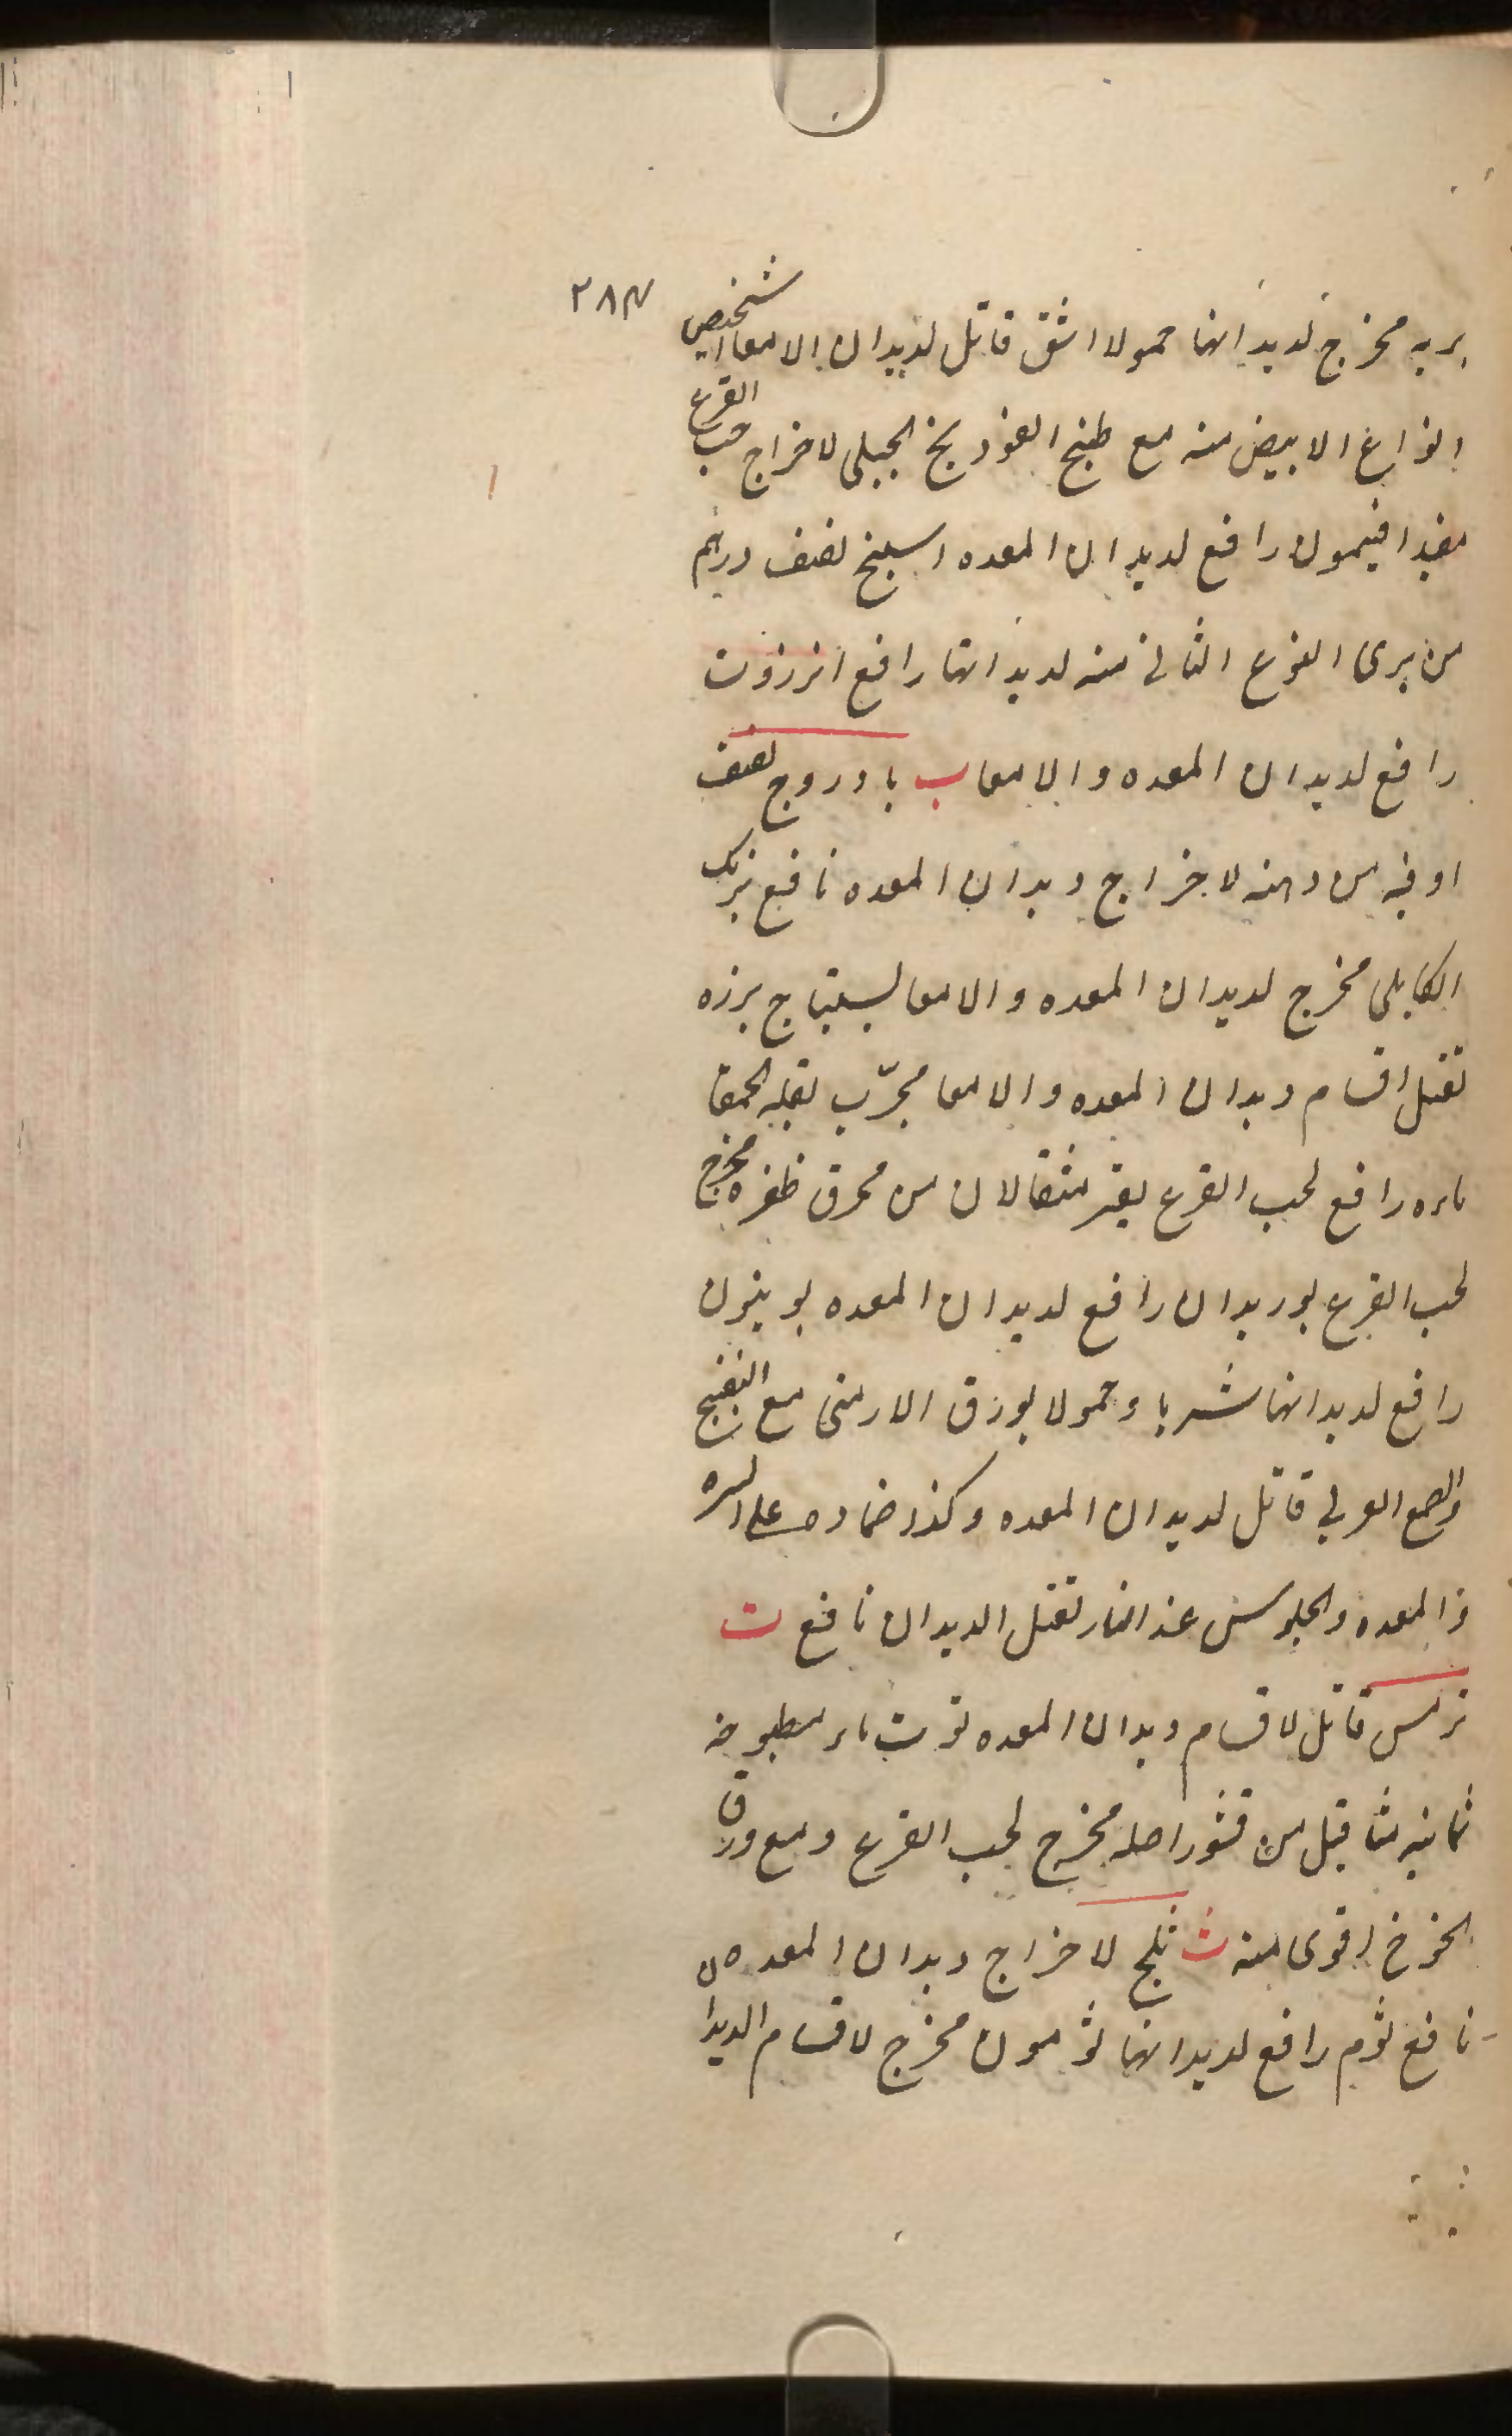 ٢٨٣
بريه مخرج لديدانها حمولا اشق قاتل لديدان الامعا اشخيص
انواع الابيض منه مع طبخ الفوذينج الجبلى لاخراج حب القرع
مفيد افتيمون رافع لديدان المعده اسبنج نصف درهم
من برى النوع الثانى منه لديدانها رافع انزروت
رافع لديدان المعده والامعا ب بادروج نصف
اوقيه من دهنه لاخراج ديدان المعده نافع برنك
الكابلى مخرج لديدان المعده والامعا بسبتاج بزره
تقتل اقسام ديدان المعده والامعا مجرّب بقله الحمقا
ماءه رافع لحب القرع بقر مثقالان من محرق ظفره مخرج
لحب القرع بوريدان رافع لديدان المعده بوينون
رافع لديدانها شربا وحمولا بورق الارمنى مع البنفسج
والصمغ العربى قاتل لديدان المعده وكذا ضماده على السره
و المعده والجلوس عند النار تقتل الديدان نافع ت
ترمس قاتل لاقسام ديدان المعده توت ماء مطبوخه
ثمانيه مثاقيل من قشور اصله مخرج لحب القرع ومع ورق
الخوخ اقوى منه ث ثلج لاخراج ديدان المعده
نافع ثوم رافع لديدانها ثومون مخرج لاقسام الديدان